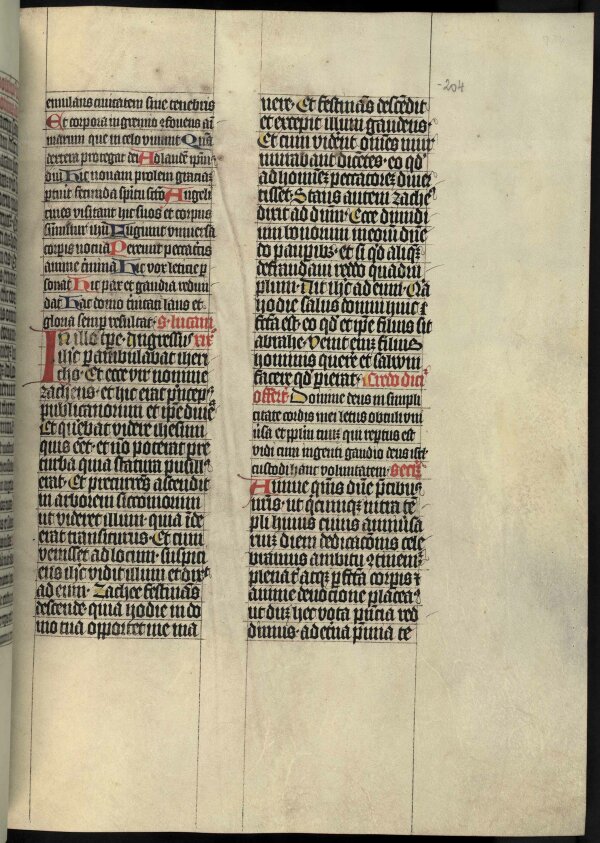 emulans civitatem sine tenebris
Et corpora in gremio cōfovens aīi
marum que in celo vivunt Quā
dextera protegat dei Ad laudē ipīus
diu Hic novam prolem gracia
pturit fecunda spiritu sctō Angeli
cives visitant hic suos et corpus
sumitur ihū Fugiunt universa
corpis nocua Pereunt peccatricis
anime crimina Hic vox leticie p
sonat Hic pax et gaudia redun
dat Hac domo trinitati laus et
gloria semp resultat S. lucam
In illo tpe Ingressus xix
ihc perambulabat iheri
cho Et ecce vir nomine
zacheus et hic erat princeps
publicanorum et ipe dives
Et querebat videre ihesum
quis eet et nō poterat pre
turba quia statura pusill
erat Et precurrēs ascendit
in arborem siccomorum
ut videret illum quia īde
erat transiturus Et cum
venisset ad locum suspici
ens ihc vidit illum et dix
ad eum Zachee festināns
descende quia hodie in do
mo tua opportet me ma
204
nere Et festināns descēdit
et excepit illum gaudens
Et cum viderēt omēs mur
murabant dicētes eo qd
ad hoīem peccatorē diver
tisset Stans autem zache
dixit ad dūm Ecce dimidi
um bonorum meorū dūe
do paupibz et si qd aliquē
defraudam reddo quadru
plum Ait ihc ad eum Qa
hodie salus domui huic
fcta est eo qd et ipe filius sit
abrahe Venit enī filius
hominis querere et salvum
facere qd perierat Credo dicī
offert Domine deus in simpli
citate cordis mei letus obtuli uni
vsa et pplm tuum qui reptus est
vidi cum ingenti gaudio deus isrl
custodi hanc voluntatem Secr
Annue quīs dūe prcibus
nrīs ut quicumque intra tē
pli huius cuius anniversa
rium diem dedicacōnis cele
bramus ambitū cōtinemr
plena tibi atque pfcta corpis et
anime devocione placeam
ut dum hec vota pntia red
dimus ad eterna pmia te